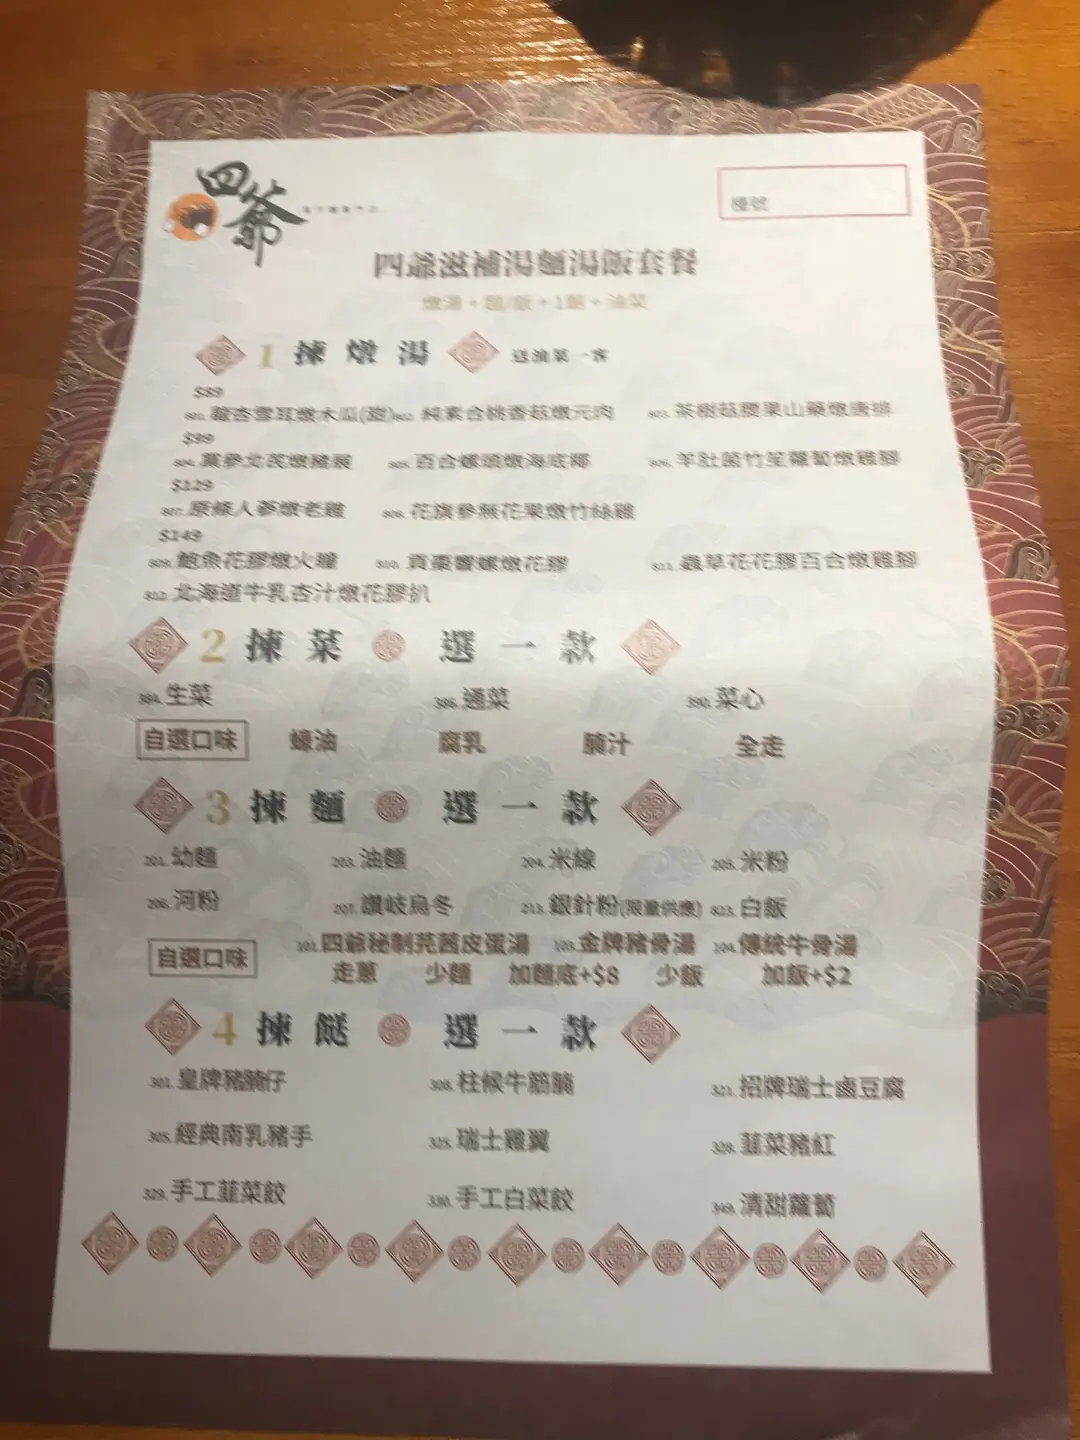 四爺
檯號
四爺滋補湯麵湯飯套餐
燉湯 + 麵/飯 + 1餸 + 油菜
1 揀燉湯 送油菜一客
$89
801. 龍杏雪耳燉木瓜(甜) 802. 純素合桃香菇燉元肉 803. 茶樹菇腰果山藥燉唐排
$99
804. 黨參北芪燉豬𦟌 805. 百合螺頭燉海底椰 806. 羊肚菌竹笙蘿蔔燉雞腳
$129
807. 原條人蔘燉老雞 808. 花旗參無花果燉竹絲雞
$149
809. 鮑魚花膠燉火瞳 810. 貢棗響螺燉花膠 811. 蟲草花花膠百合燉雞腳
812. 北海道牛乳杏汁燉花膠扒
2 揀菜 選一款
384. 生菜 386. 通菜 390. 菜心
自選口味 蠔油 腐乳 腩汁 全走
3 揀麵 選一款
201. 幼麵 203. 油麵 204. 米線 205. 米粉
206. 河粉 207. 讚岐烏冬 213. 銀針粉(限量供應) 823. 白飯
101. 四爺秘制芫茜皮蛋湯 103. 金牌豬骨湯 104. 傳統牛骨湯
自選口味 走蔥 少麵 加麵底+$8 少飯 加飯+$2
4 揀餸 選一款
301. 皇牌豬腩仔 308. 柱候牛筋腩 321. 招牌瑞士鹵豆腐
305. 經典南乳豬手 325. 瑞士雞翼 328. 韮菜豬紅
329. 手工韮菜餃 330. 手工白菜餃 349. 清甜蘿蔔